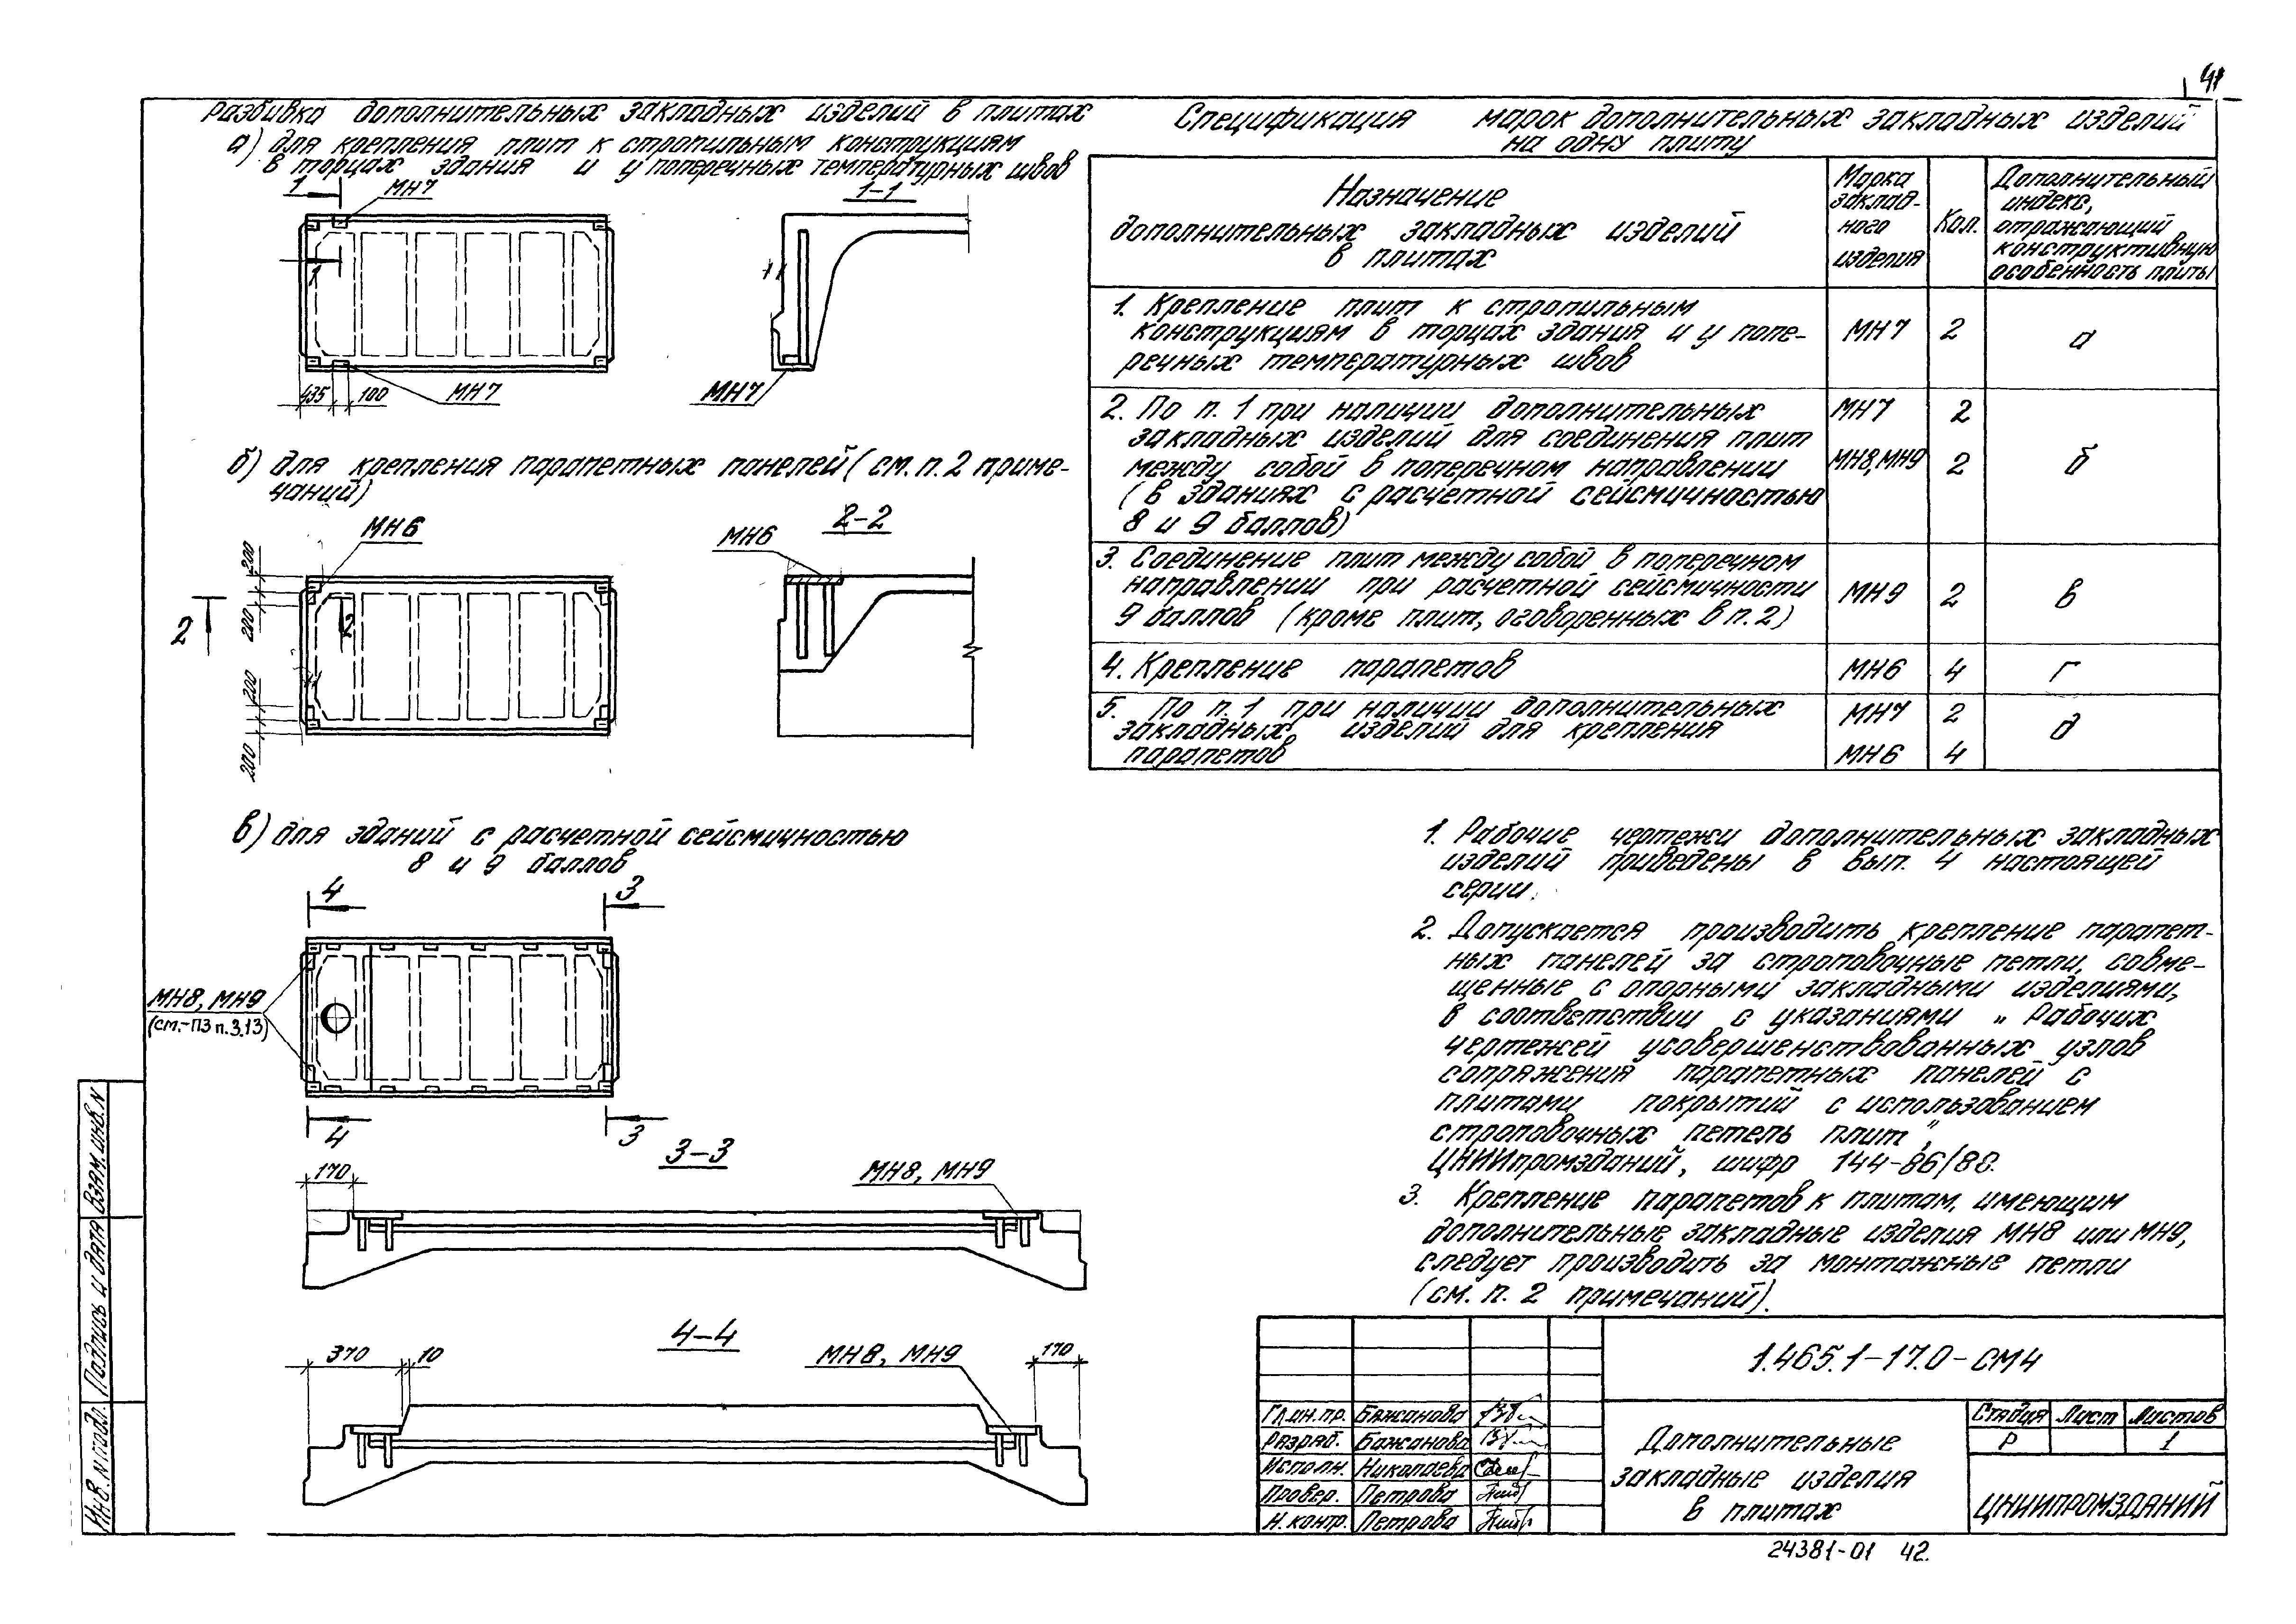 41
Разбивка дополнительных закладных изделий в плитах
а) для крепления плит к стропильным конструкциям
в торцах здания и у поперечных температурных швов
1
МН7
1-1
1
435
100
МН7
МН7
б) для крепления парапетных панелей (см. п. 2 приме-
чаний)
МН6
2-2
МН6
200
200
2
2
200
200
в) для зданий с расчетной сейсмичностью
8 и 9 баллов
4
3
МН8, МН9
(см.-ПЗ п.3.13)
4
3
3-3
170
МН8, МН9
4-4
370
10
МН8, МН9
170
Спецификация марок дополнительных закладных изделий
на одну плиту
Назначение
дополнительных закладных изделий
в плитах
Марка
заклад-
ного
изделия
Кол.
Дополнительный
индекс,
отражающий
конструктивную
особенность плиты
1. Крепление плит к стропильным
конструкциям в торцах здания и у попе-
речных температурных швов
МН7
2
а
2. По п. 1 при наличии дополнительных
закладных изделий для соединения плит
между собой в поперечном направлении
(в зданиях с расчетной сейсмичностью
8 и 9 баллов)
МН7
2
МН8, МН9
2
б
3. Соединение плит между собой в поперечном
направлении при расчетной сейсмичности
9 баллов (кроме плит, оговоренных в п. 2)
МН9
2
в
4. Крепление парапетов
МН6
4
г
5. По п. 1 при наличии дополнительных
закладных изделий для крепления
парапетов
МН7
2
МН6
4
д
1. Рабочие чертежи дополнительных закладных
изделий приведены в вып. 4 настоящей
серии.
2. Допускается производить крепление парапет-
ных панелей за строповочные петли, совме-
щенные с опорными закладными изделиями,
в соответствии с указаниями „Рабочих
чертежей усовершенствованных узлов
сопряжения парапетных панелей с
плитами покрытий с использованием
строповочных петель плит",
ЦНИИпромзданий, шифр 144-86/88.
3. Крепление парапетов к плитам, имеющим
дополнительные закладные изделия МН8 или МН9,
следует производить за монтажные петли
(см. п. 2 примечаний).
1.465.1-17.0-СМ4
Гл.ин.пр. Бажанова
Разраб. Бажанова
Исполн. Николаева
Провер. Петрова
Н. контр. Петрова
Дополнительные
закладные изделия
в плитах
Стадия Лист Листов
Р 1
ЦНИИПРОМЗДАНИЙ
24381-01 42.
Инв. N подл. Подпись и дата Взам. инв. N